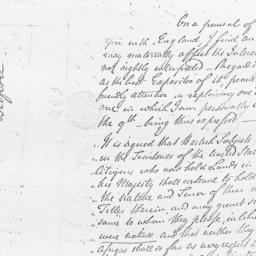 On a perusal of
with England I find an
may materially affect the Interes
not rightly interpreted
as the best Expositor of it,
attention in explaining one
one in which I am personally
the 9th being thus expressed
"It is agreed that British Subjects
"in the Territories of the United Stat
Citizens who now hold Lands in
his Majesty shall continue to hold
the Nature and Tenor of their
Titles therein, and may grant s
same to whom they please, in like
were natives and that neither they
shall so far as may respect